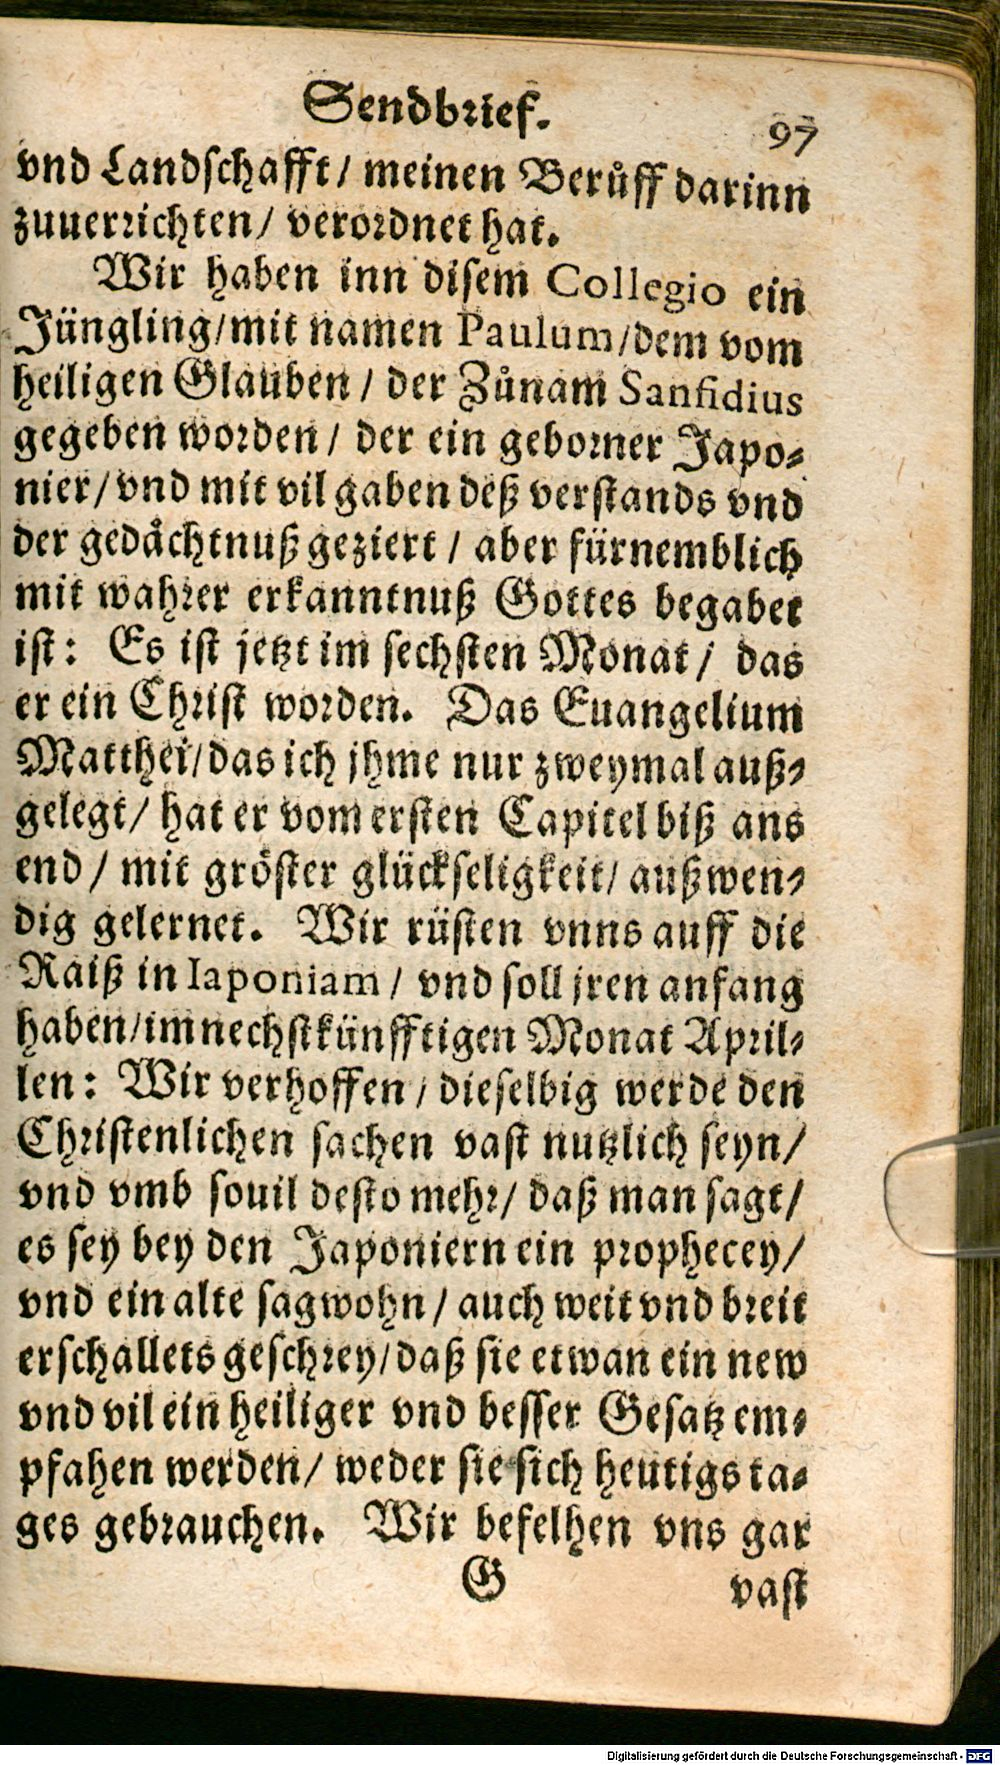 Sendbrief.
97
vnd Landschafft/ meinen Berůff darinn
zuuerrichten/ verordnet hat.
Wir haben inn disem Collegio ein
Jüngling/mit namen Paulum/dem vom
heiligen Glauben/ der Zůnam Sanfidius
gegeben worden/ der ein geborner Japo-
nier/vnd mit vil gaben deß verstands vnd
der gedåchtnuß geziert/ aber fürnemblich
mit wahrer erkanntnuß Gottes begabet
ist: Es ist jetzt im sechsten Monat/ das
er ein Christ worden. Das Euangelium
Matthei/das ich jhme nur zweymal auß-
gelegt/ hat er vom ersten Capitel biß ans
end/ mit gröster glückseligkeit/ außwen-
dig gelernet. Wir rüsten vnns auff die
Raiß in Iaponiam/ vnd soll jren anfang
haben/im nechstkünfftigen Monat April-
len: Wir verhoffen/ dieselbig werde den
Christenlichen sachen vast nutzlich seyn/
vnd vmb souil desto mehr/ daß man sagt/
es sey bey den Japoniern ein prophecey/
vnd ein alte sagwohn/ auch weit vnd breit
erschallets geschrey/daß sie etwan ein new
vnd vil ein heiliger vnd besser Gesatz em-
pfahen werden/ weder sie sich heutigs ta-
ges gebrauchen. Wir befelhen vns gar
G vast
Digitalisierung gefördert durch die Deutsche Forschungsgemeinschaft - DFG